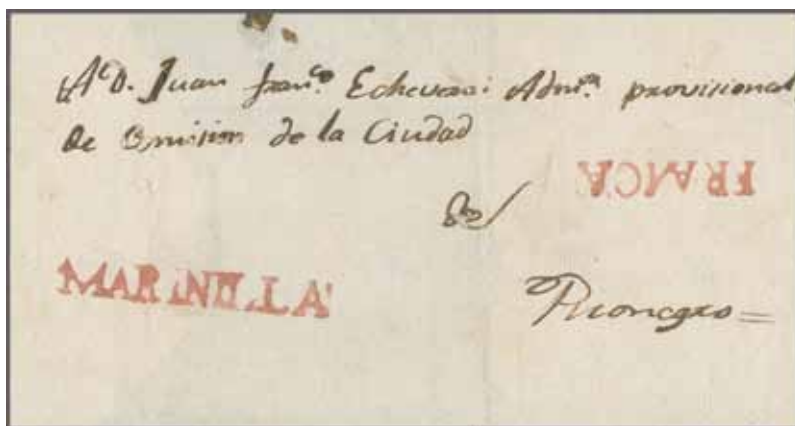 A D. Juan Fran.co Echeverri Adm.or provisional
de Emision de la Ciudad
FRANCA
de
MARINILLA
Rionegro =